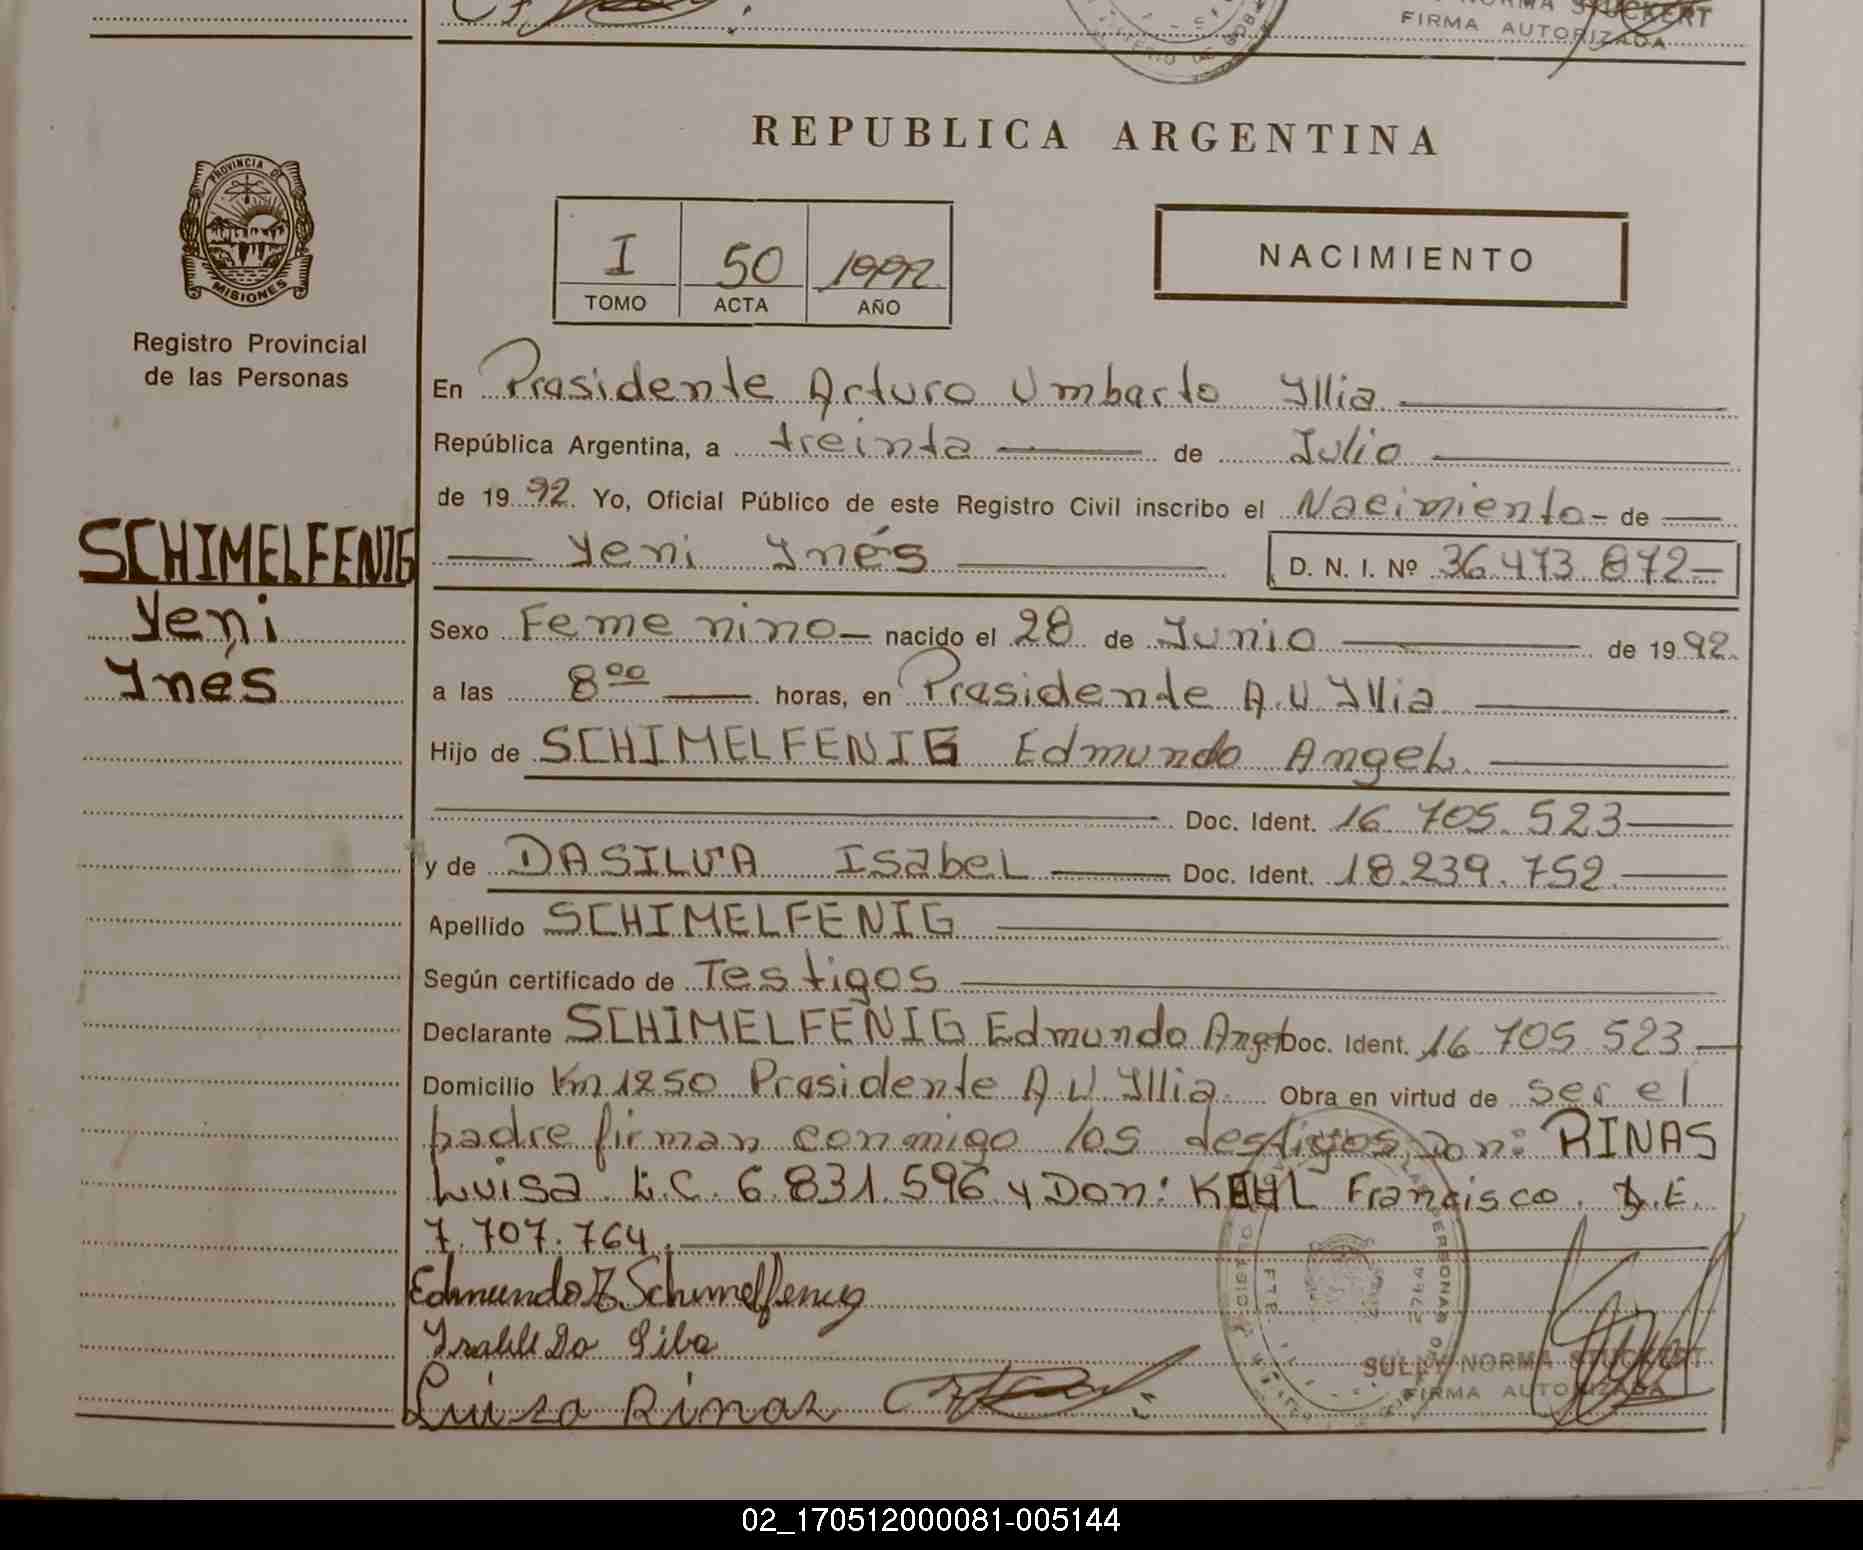 NORMA STUCKERT
FIRMA AUTORIZADA
REPUBLICA ARGENTINA
PROVINCIA DE
MISIONES
Registro Provincial
de las Personas
I 50 1992
TOMO ACTA AÑO
NACIMIENTO
En Presidente Arturo Umberto Yllia
República Argentina, a treinta de Julio
de 19 92. Yo, Oficial Público de este Registro Civil inscribo el Nacimiento - de
Yeni Ynés D. N. I. Nº 36.473.872-
SCHIMELFENIG
Yeni
Ynés
Sexo Femenino - nacido el 28 de Junio de 19 92.
a las 8 00 horas, en Presidente A.U Yllia
Hijo de SCHIMELFENIG Edmundo Angel.
Doc. Ident. 16.705.523
y de DASILVA Isabel Doc. Ident. 18.239.752
Apellido SCHIMELFENIG
Según certificado de Testigos
Declarante SCHIMELFENIG Edmundo Angel Doc. Ident. 16.705.523
Domicilio Km 1250 Presidente A.U Yllia. Obra en virtud de ser el
padre firman conmigo los testigos, Don: RINAS
Luisa L.C. 6.831.596 y Don: KEHL Francisco. D.E.
7.707.764.
Edmundo A Schimelfenig
Luisa Rinas
SULLY NORMA STUCKERT
FIRMA AUTORIZADA
02_170512000081-005144